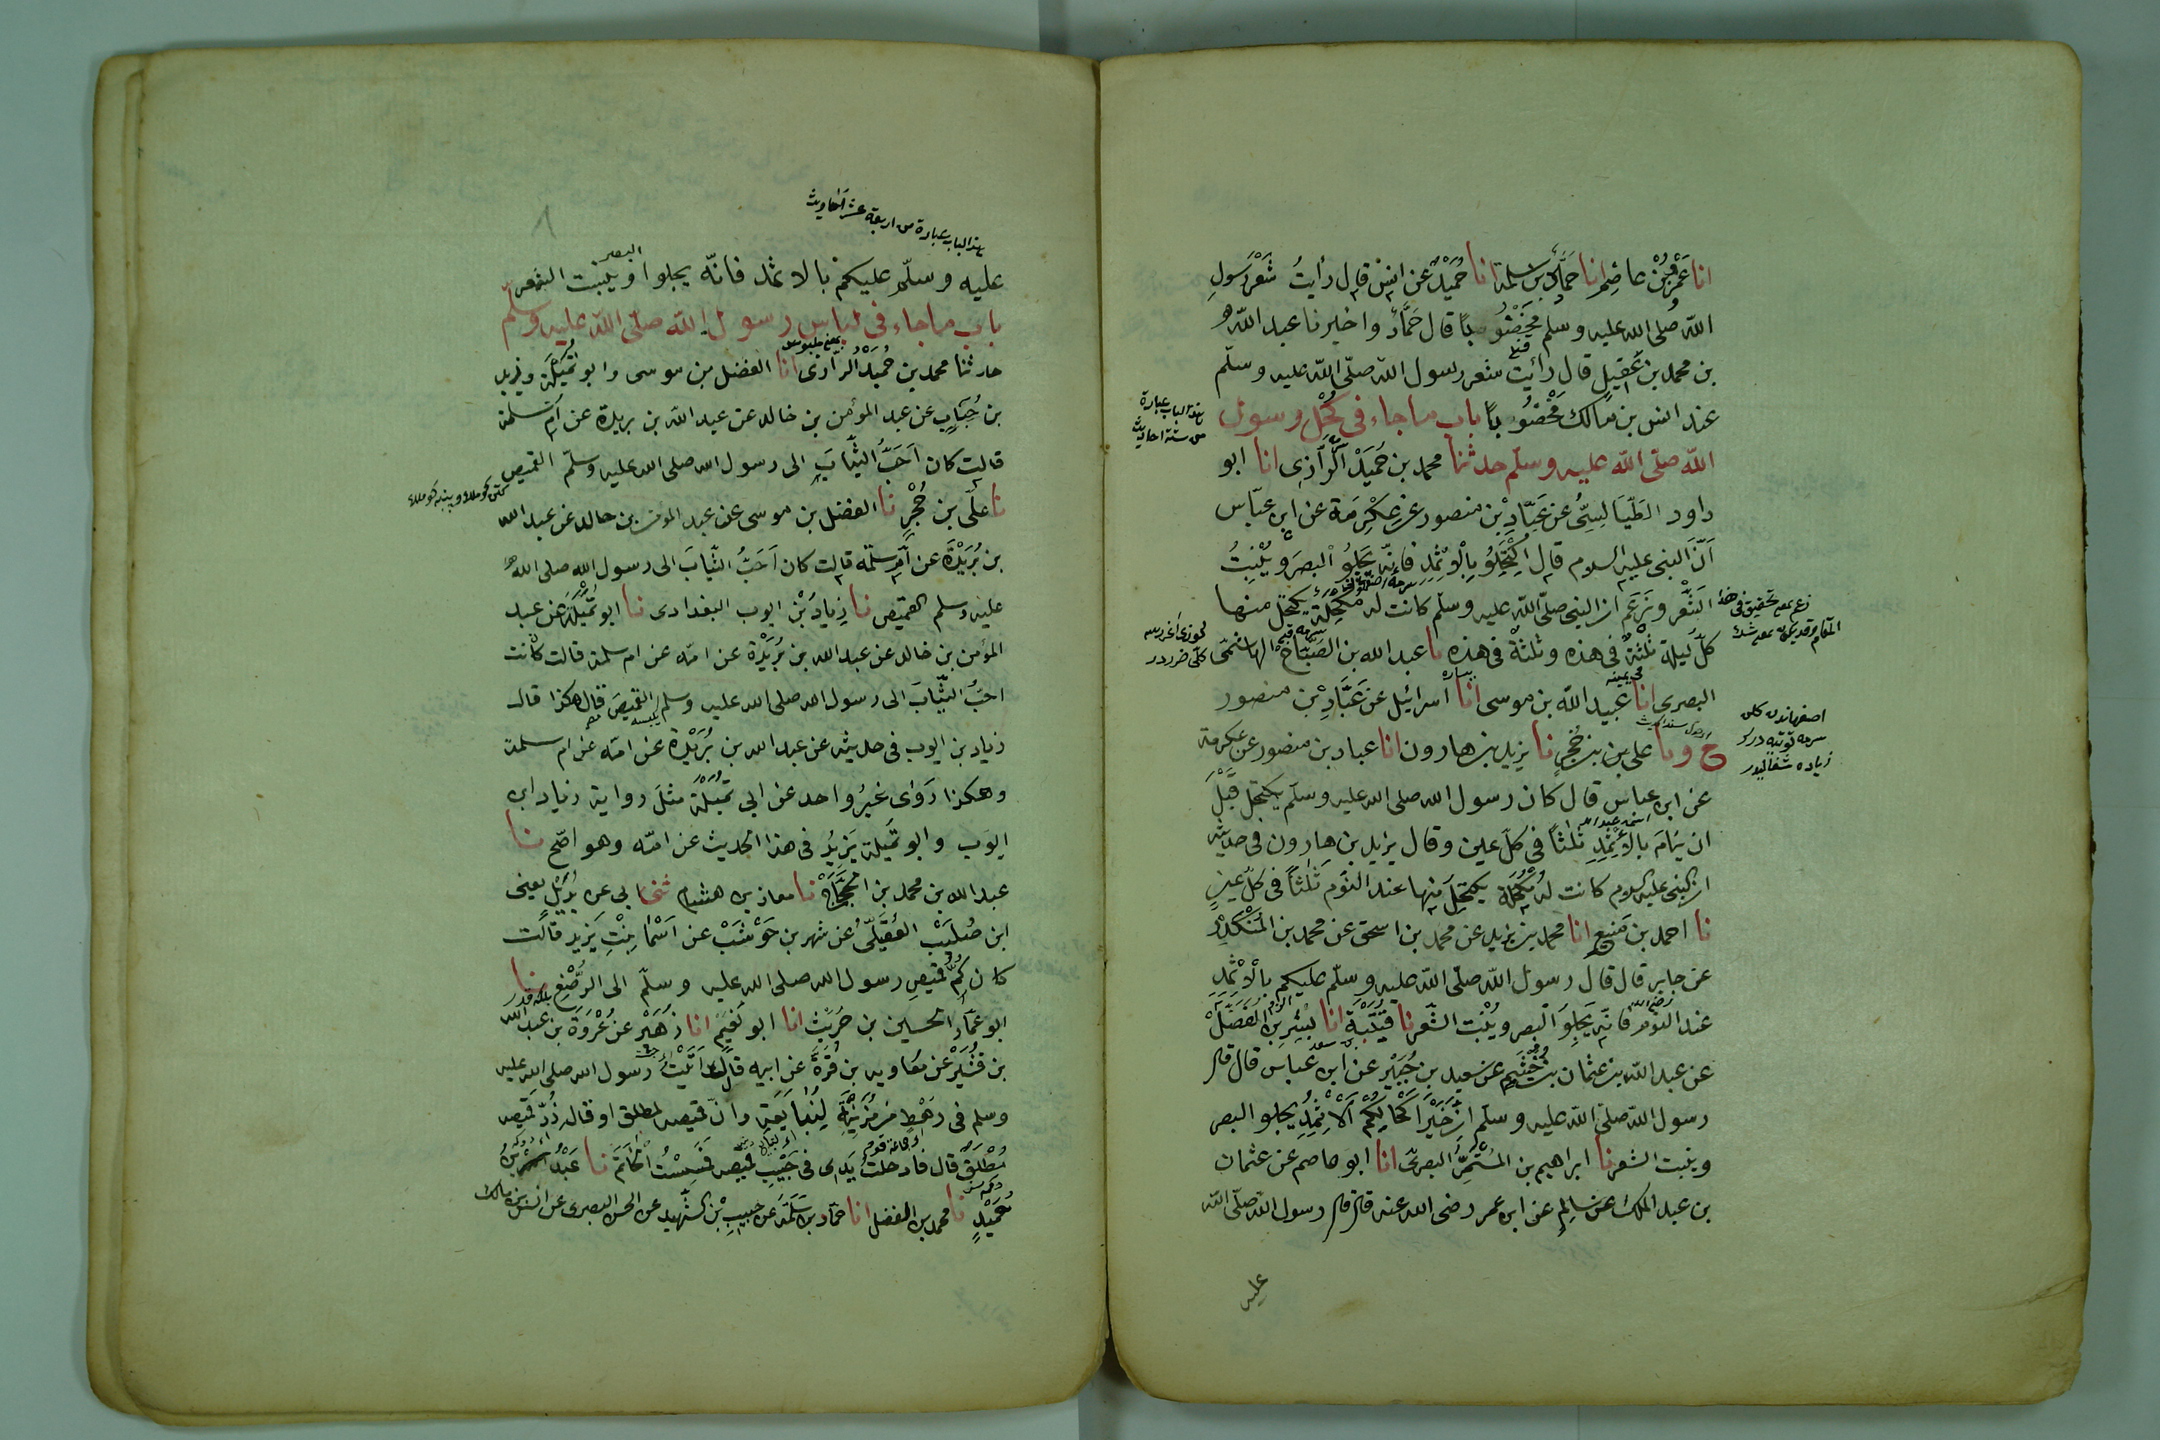 انا عَمْرُوبْنُ عاصِمٍ انا حَمَّادُ بن سلمة انا حُمَيْدٌ عن انسٍ قال رأيتُ شَعْرَ رَسولِ
اللّه صلى الله عليه وسلم مَخْضُوبًا قال حَمَّادٌ واخبرنا عبد اللّه
بن محمد بن عَقِيلٍ قال رأيت شعر رسول اللّه صلّى اللّه عليه وسلّم
عند انس بن مالك مَخْضُوبًا باب ماجاء فى كُحْلِ رسول
هذا الباب عبارة
من ستة احاديث
اللّه صلّى اللّه عليه وسلّم حدثنا محمد بن حُمَيْدٍ الرَّازِى انا ابو
داود الطَّيَالِسِىُّ عن عَبَّادِ بْنِ منصور عن عِكْرِمَة عن ابن عبّاس
اَنَّ النبى عليه السلام قال اِكْتَحِلُو بِالْاِثْمِدِ فانّه يَجْلُو الْبَصَرَ ويُنْبِتُ
الشَّعْرَ وَزَعَمَ ان النبى صلّى اللّه عليه وسلّم كانت له مُكْحِلَةٌ يكتحل منها
كلّ لَيلة ثلثةً فى هذه وثلثةً فى هذه نا عبد الله بن الصَّبَّاحِ الهاشمى
البصرى انا عبيد اللّه بن موسى انا اسرائيل عن عَبَّادِ بْنِ منصور
اصفهاندن كلن
سرمه توتيه دركر
زياده شفاليدر
ح ونا على بن حُجْرٍ نا يزيد بن هارون انا عباد بن منصور عن عكرمة
عن ابن عباس قال كان رسول الله صلى الله عليه وسلّم يكتحل قَبْلَ
ان يَنَامَ بالْاِثْمِدِ ثَلثًا فى كلّ عين وقال يزيد بن هارون فى حديثه
ان النبى عليه السلام كانت له مُكْحُلَة يكتحِل مِنها عند النَوم ثَلثًا فى كلّ عينٍ
نا احمد بن مَنِيعٍ انا محمد بن يزيد عن محمد بن اسحق عن محمد بن المُنْكَدِرِ
عن جابر قال قال رسول اللّه صلّى اللّه عليه وسلّم عليكم بِالْاِثْمِدِ
عند النوم فانّه يَجْلُو البَصر ويُنْبت الشّعر نا قُتَيْبَة انا بِشْر بن المُفَضَّلْ
عن عبد اللّه بن عثمان بن خُثَيْمٍ عن سعيد بن جُبَيْرٍ عن ابن عباس قال قال
رسول اللّه صلّى اللّه عليه وسلّم اِنَّ خَيْرَ اَكْحَالِكُمْ اَلْاِثْمِدُ يجلو البصر
وينبت الشعر نا ابراهيم بن المُسْتَمِرُّ البصرىّ انا ابو عاصم عن عثمان
بن عبد الملك عن سَالِمٍ عن ابن عمر رضى الله عنه قال قال رسول اللّه صلّى اللّه
عليه
هذا الباب عبارة من اربعة عشر احاديث
عليه وسلّم عليكم بالاثمد فانّه يجلوا البصر وينبت الشعر
باب ماجاء فى لباس رسول اللّه صلّى اللّه عليه وسلّم
حدثنا محمد بن حُمَيْدُ الرازى انا الفضل بن موسى وابو تُمَيْلَة وزيد
بن حُبَابٍ عن عبد المؤمن بن خالد عن عبد اللّه بن بريدة عن اُمّ سلمة
قالت كان اَحَبَّ الثيابَ الى رسول الله صلى الله عليه وسلّم القميص
نا علىّ بن حُجْرٍ نا الفضل بن موسى عن عبد المؤمن بن خالد عن عبد الله
بن بُرَيْدَة عن اُمّ سلَمه قالت كان اَحَبُّ الثّيابَ الى رسول الله صلى الله
عليه وسلم القميص نا زِيَادُ بْنُ ايوب البغدادى نا ابو تُمَيْلَة عن عبد
المؤمن بن خالد عن عبد الله بن بُرَيْدَة عن امّه عن ام سلمة قالت كانت
احبُّ الثِّيابَ الى رسول الله صلى الله عليه وسلم القميصَ قال هكذا قال
زياد بن ايوب فى حديثه عن عبد الله بن بُرَيْدَة عن امّه عن ام سلمة
وهكذا رَوَاى غيرُ واحد عن ابى تُمَيْلَة مثلَ رواية زياد ابن
ايوب وابو تُمَيلة يَزِيدُ فى هذا الحديث عن امّه وهو اصّح نا
عبد الله بن محمد بن الحَجَّاجْ نا معاذ بن هشام ثنى ابى عن بُدَيْلٍ يعنى
ابن صُلَيْب العُقَيلِىُّ عن شهر بن حَوْشَبْ عن اَسْمَا بِنْتِ يَزِيد قالَت
كان كُمُّ قميصِ رسول الله صلى الله عليه وسلّم الى الرُّصْغِ نا
ابو عمّار الحسين بن حُرَيْث انا ابو نُعَيْم انا زُهَيْر عن عُرْوَة بن عبد الله
بن قُشَيْر عن مُعَاويه بن قُرَّة عن ابيه قال اَتَيْتُ رسول الله صلى الله عليه
وسلم فى رَهْطٍ من مُزَيْنَةِ لِنُبَايَعَهُ وانّ قميصه لمطلق او قال زُرّ قميصه
مُطْلَقٌ قال فادخلتُ يَدِى فى جَيْبِ قميصه فَمَسِسْتُ الخاتَم نا عَبْدُ بْنُ
حُمَيْدٍ نا محمد بن الفضل انا حَمّاد بن سَلَمَة عن حبيبِ بْنِ الشَّهِيد عن الحسن البصرى عن انس بن مالك